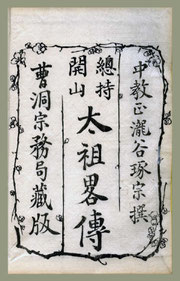 中教正瀧谷琢宗撰
總持開山
太祖畧傳
曹洞宗務局藏版